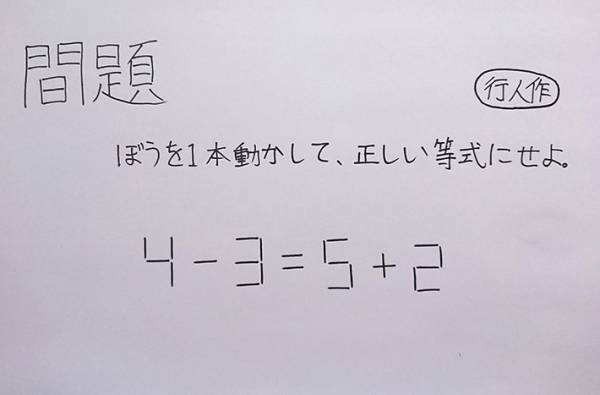 問題
行人作
ぼうを1本動かして、正しい等式にせよ。
4-3=5+2